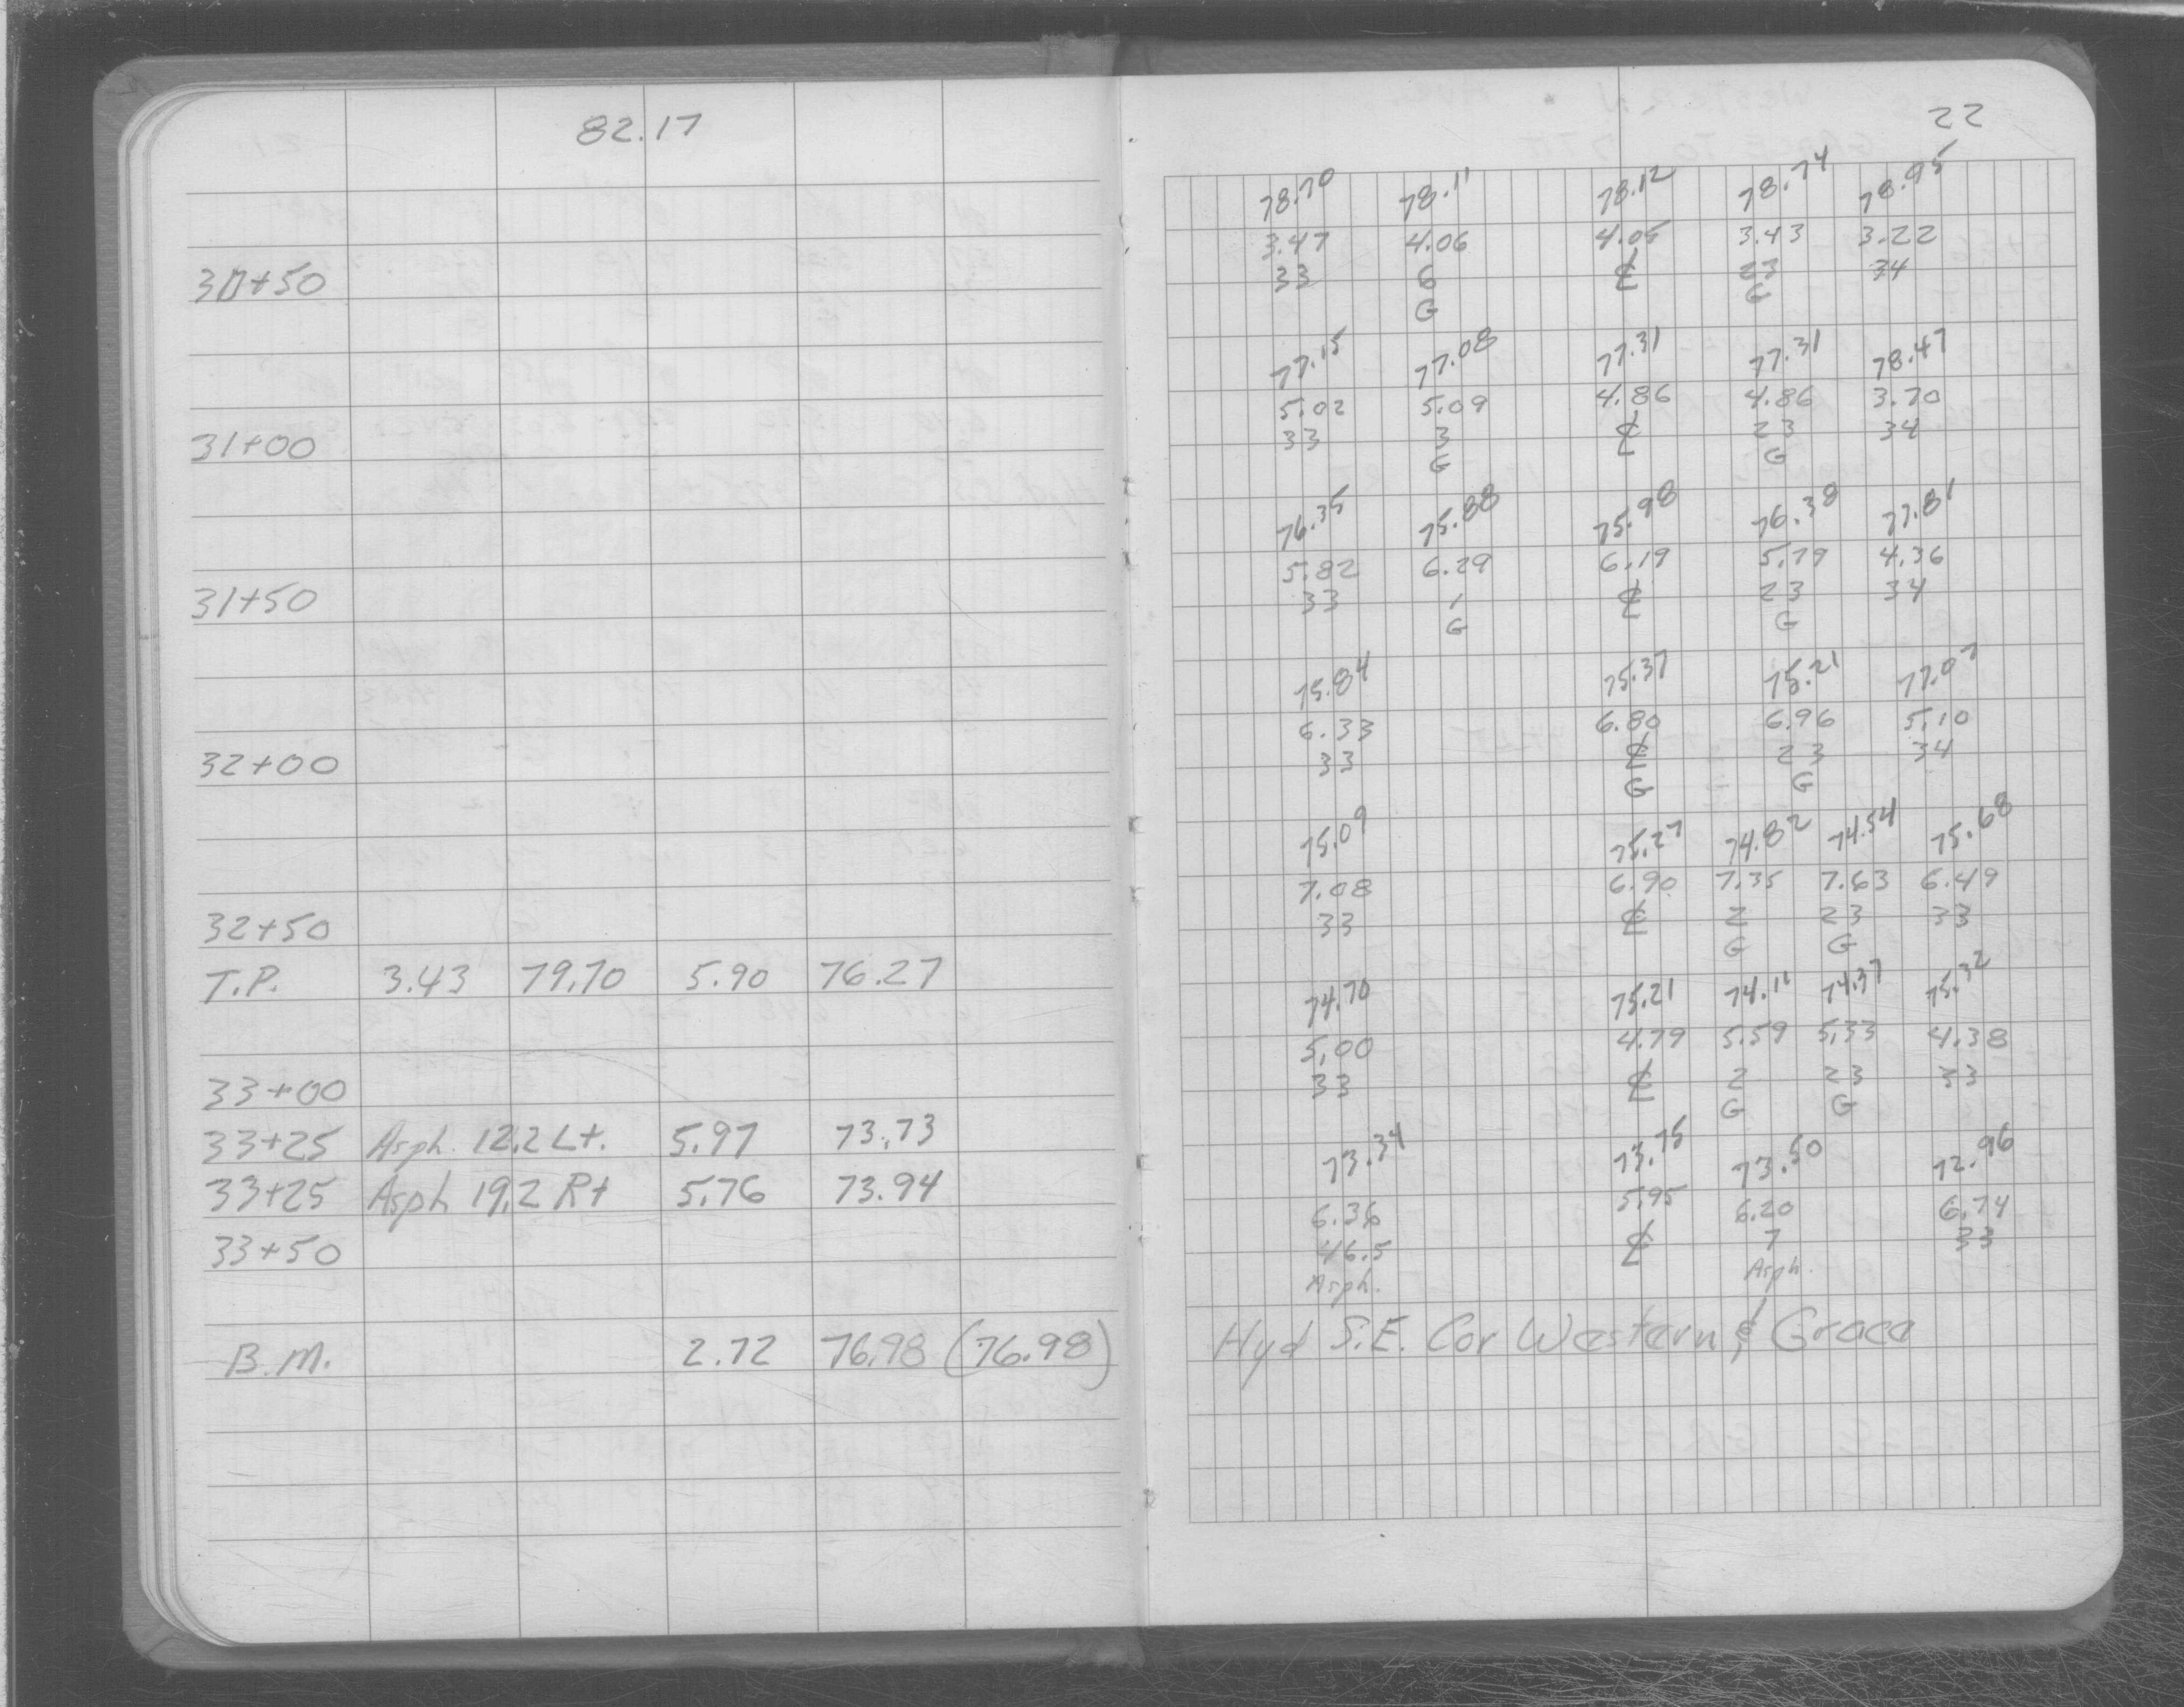 82.17
30+50
31+00
31+50
32+00
32+50
T.P. 3.43 79.70 5.90 76.27
33+00
33+25 Asph. 12.2 Lt. 5.97 73.73
33+25 Asph 19.2 Rt 5.76 73.94
33+50
B.M. 2.72 76.98 (76.98)
22
78.70 78.11 78.12 78.74 78.95
3.47 4.06 4.05 3.43 3.22
33 6 ℄ 23 34
G G
77.15 77.08 77.31 77.31 78.47
5.02 5.09 4.86 4.86 3.70
33 3 ℄ 23 34
G G
76.35 75.88 75.98 76.38 77.81
5.82 6.29 6.19 5.79 4.36
33 1 ℄ 23 34
G G
75.84 75.37 75.21 77.07
6.33 6.80 6.96 5.10
33 ℄ 23 34
G G
75.09 75.27 74.82 74.54 75.68
7.08 6.90 7.35 7.63 6.49
33 ℄ 2 23 33
G G
74.70 75.21 74.11 74.37 75.32
5.00 4.79 5.59 5.33 4.38
33 ℄ 2 23 33
G G
73.34 73.75 73.50 72.96
6.36 5.95 6.20 6.74
46.5 ℄ 7 33
Asph. Asph.
Hyd S.E. Cor Western & Grace